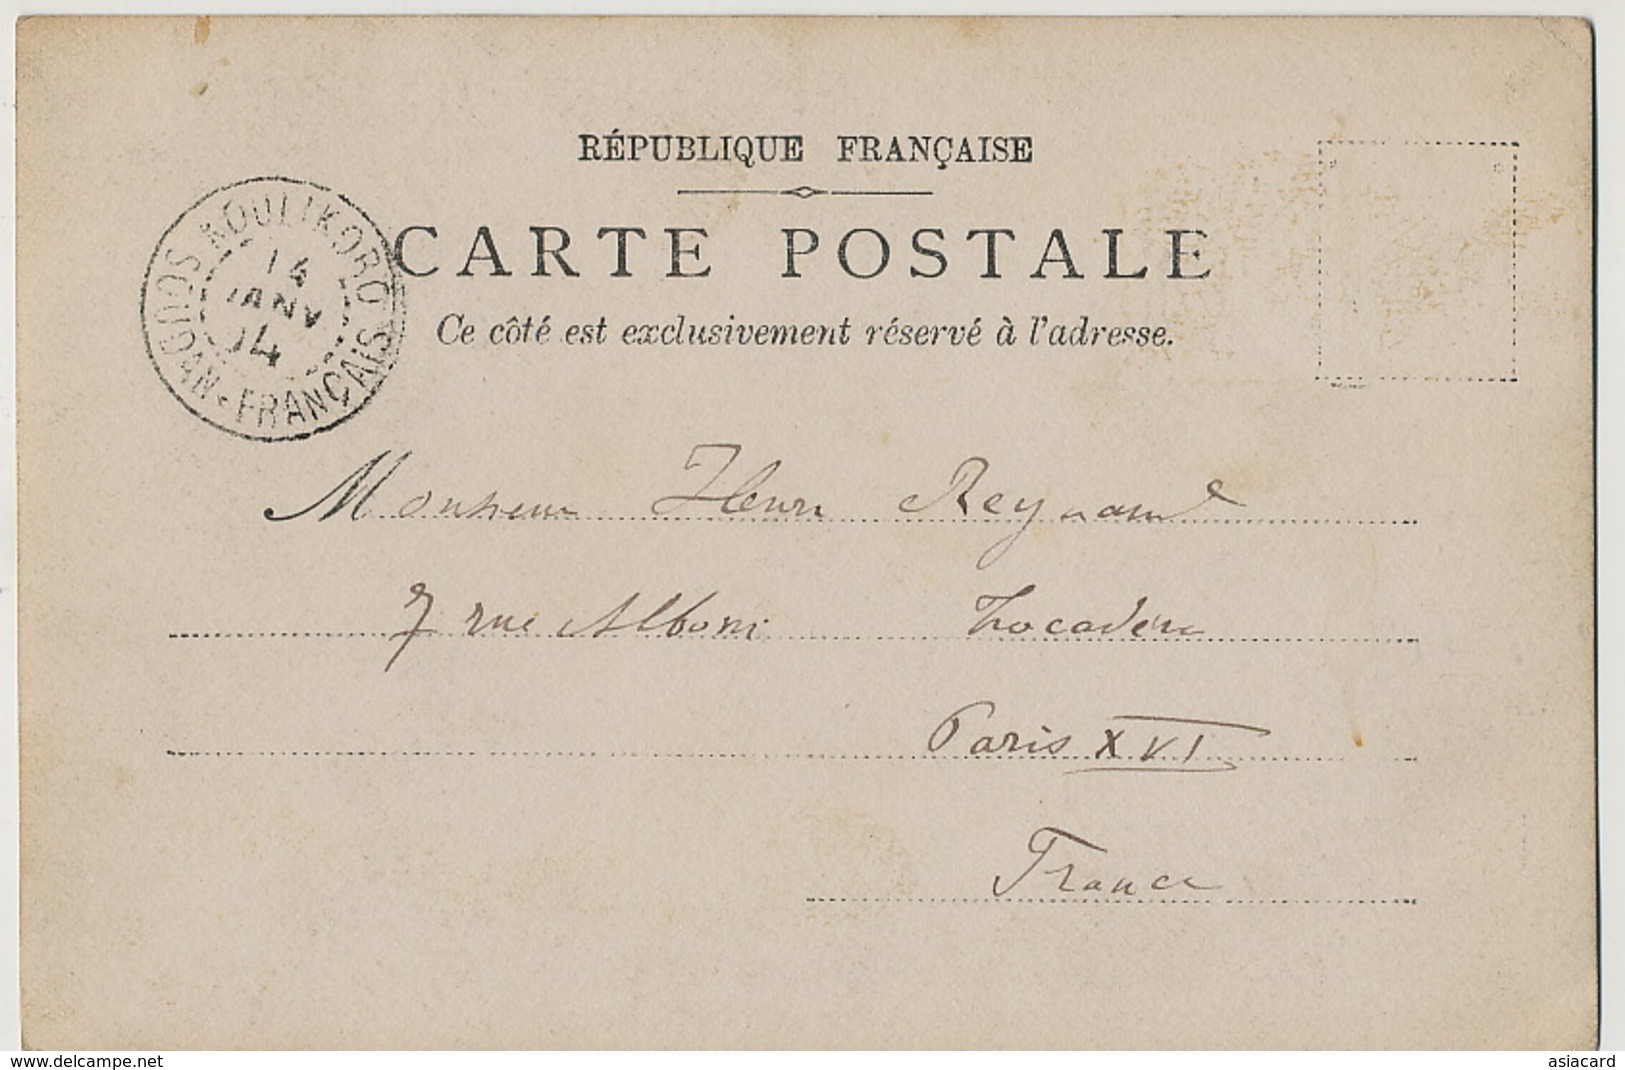 RÉPUBLIQUE FRANÇAISE
CARTE POSTALE
Ce côté est exclusivement réservé à l'adresse.
KOULIKORO
14
JANV
04
SOUDAN-FRANÇAIS
Monsieur Henri Reynaud
7 rue Alboni Trocadero
Paris XVI
France
www.delcampe.net
asiacard